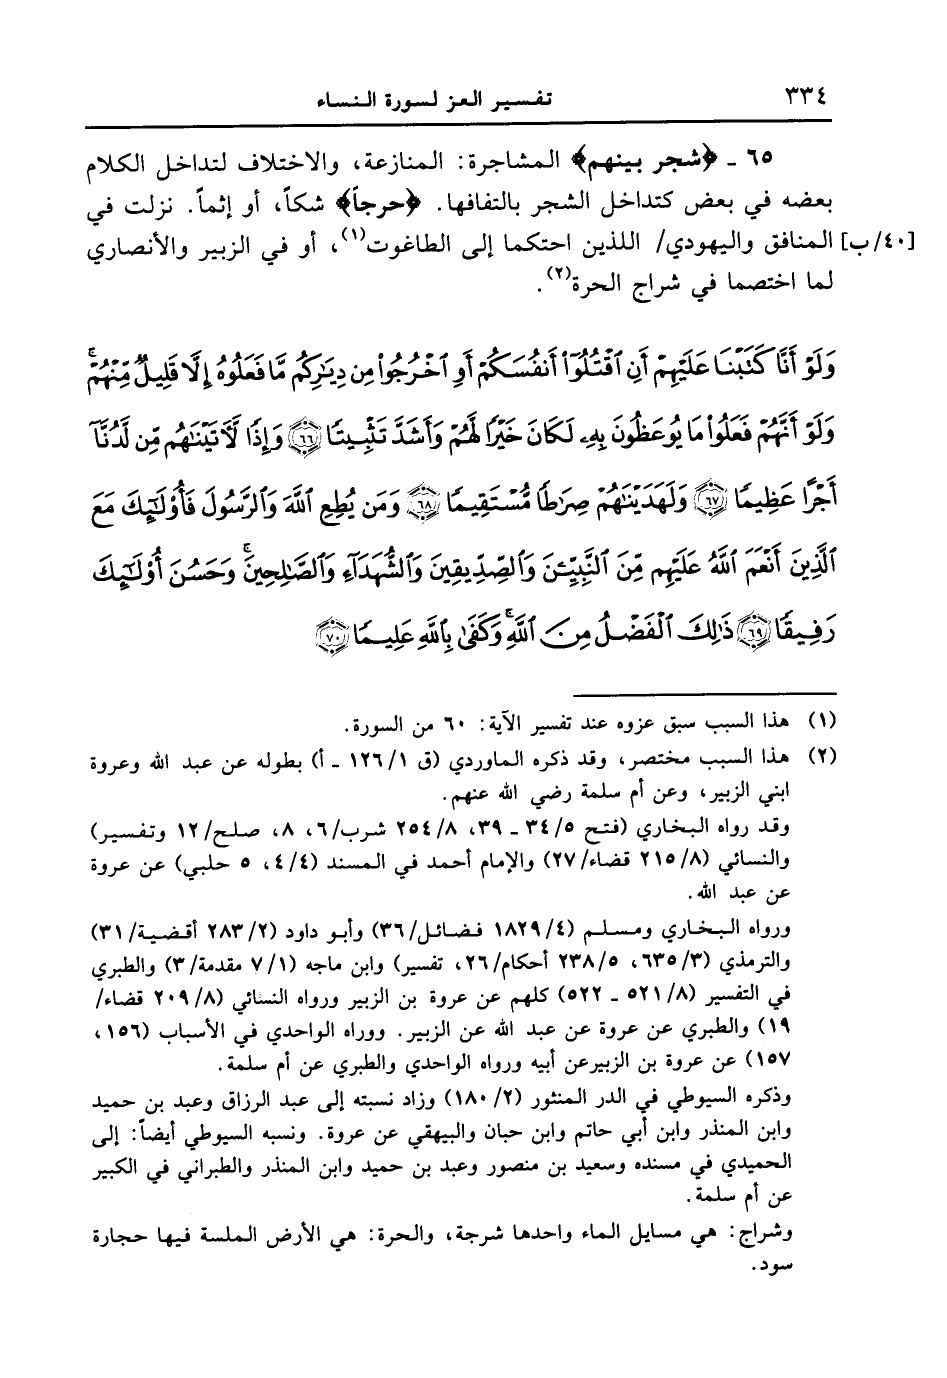 ٣٣٤ تفسير العز لسورة النساء
٦٥ ـ ﴿شجر بينهم﴾ المشاجرة: المنازعة، والاختلاف لتداخل الكلام
بعضه في بعض كتداخل الشجر بالتفافها. ﴿حرجاً﴾ شكاً، أو إثماً. نزلت في
[٤٠/ب] المنافق واليهودي/ اللذين احتكما إلى الطاغوت(١)، أو في الزبير والأنصاري
لما اختصما في شراج الحرة(٢).
وَلَوْ أَنَّا كَتَبْنَا عَلَيْهِمْ أَنِ ٱقْتُلُوٓا۟ أَنفُسَكُمْ أَوِ ٱخْرُجُوا۟ مِن دِيَٰرِكُم مَّا فَعَلُوهُ إِلَّا قَلِيلٌ مِّنْهُمْ ۖ
وَلَوْ أَنَّهُمْ فَعَلُوا۟ مَا يُوعَظُونَ بِهِۦ لَكَانَ خَيْرًا لَّهُمْ وَأَشَدَّ تَثْبِيتًا ﴿٦٦﴾ وَإِذًا لَّآتَيْنَٰهُم مِّن لَّدُنَّآ
أَجْرًا عَظِيمًا ﴿٦٧﴾ وَلَهَدَيْنَٰهُمْ صِرَٰطًا مُّسْتَقِيمًا ﴿٦٨﴾ وَمَن يُطِعِ ٱللَّهَ وَٱلرَّسُولَ فَأُو۟لَٰٓئِكَ مَعَ
ٱلَّذِينَ أَنْعَمَ ٱللَّهُ عَلَيْهِم مِّنَ ٱلنَّبِيِّـۧنَ وَٱلصِّدِّيقِينَ وَٱلشُّهَدَآءِ وَٱلصَّٰلِحِينَ ۚ وَحَسُنَ أُو۟لَٰٓئِكَ
رَفِيقًا ﴿٦٩﴾ ذَٰلِكَ ٱلْفَضْلُ مِنَ ٱللَّهِ ۚ وَكَفَىٰ بِٱللَّهِ عَلِيمًا ﴿٧٠﴾
(١) هذا السبب سبق عزوه عند تفسير الآية: ٦٠ من السورة.
(٢) هذا السبب مختصر، وقد ذكره الماوردي (ق ١٢٦/١ ـ أ) بطوله عن عبد الله وعروة
ابني الزبير، وعن أم سلمة رضي الله عنهم.
وقد رواه البخاري (فتح ٣٤/٥ ـ ٣٩، ٢٥٤/٨ شرب/٦، ٨، صلح/١٢ وتفسير)
والنسائي (٢١٥/٨ قضاء/٢٧) والإمام أحمد في المسند (٤/٤، ٥ حلبي) عن عروة
عن عبد الله.
ورواه البخاري ومسلم (١٨٢٩/٤ فضائل/٣٦) وأبو داود (٢٨٣/٢ أقضية/٣١)
والترمذي (٦٣٥/٣، ٢٣٨/٥ أحكام/٢٦، تفسير) وابن ماجه (٧/١ مقدمة/٣) والطبري
في التفسير (٥٢١/٨ ـ ٥٢٢) كلهم عن عروة بن الزبير ورواه النسائي (٢٠٩/٨ قضاء/
١٩) والطبري عن عروة عن عبد الله عن الزبير. ووراه الواحدي في الأسباب (١٥٦،
١٥٧) عن عروة بن الزبيرعن أبيه ورواه الواحدي والطبري عن أم سلمة.
وذكره السيوطي في الدر المنثور (١٨٠/٢) وزاد نسبته إلى عبد الرزاق وعبد بن حميد
وابن المنذر وابن أبي حاتم وابن حبان والبيهقي عن عروة. ونسبه السيوطي أيضاً: إلى
الحميدي في مسنده وسعيد بن منصور وعبد بن حميد وابن المنذر والطبراني في الكبير
عن أم سلمة.
وشراج: هي مسايل الماء واحدها شرجة، والحرة: هي الأرض الملسة فيها حجارة
سود.